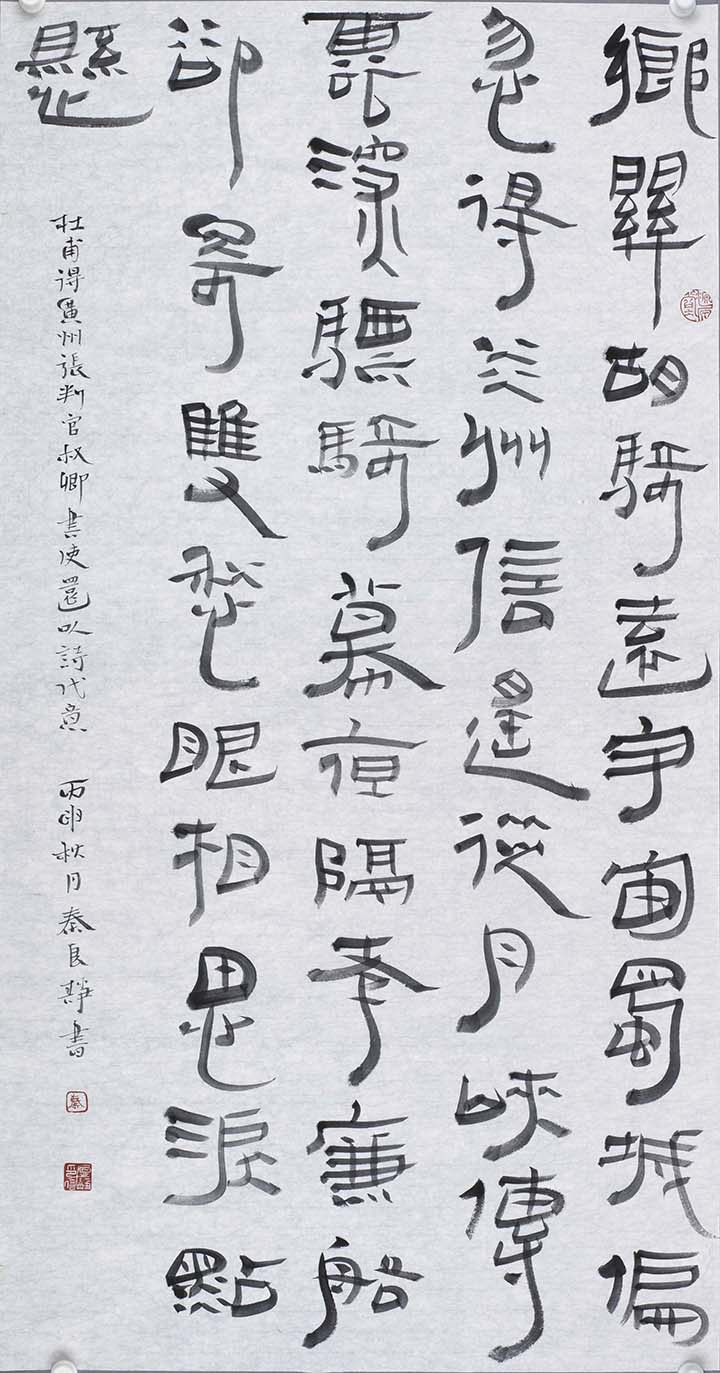 鄉關胡騎遠宇宙蜀城偏
忽得炎州信遙從月峽傳
雲深驃騎幕夜隔孝廉船
卻寄雙愁眼相思淚點
懸
杜甫得廣州張判官叔卿書使還以詩代意 丙申秋月秦良靜書
秦